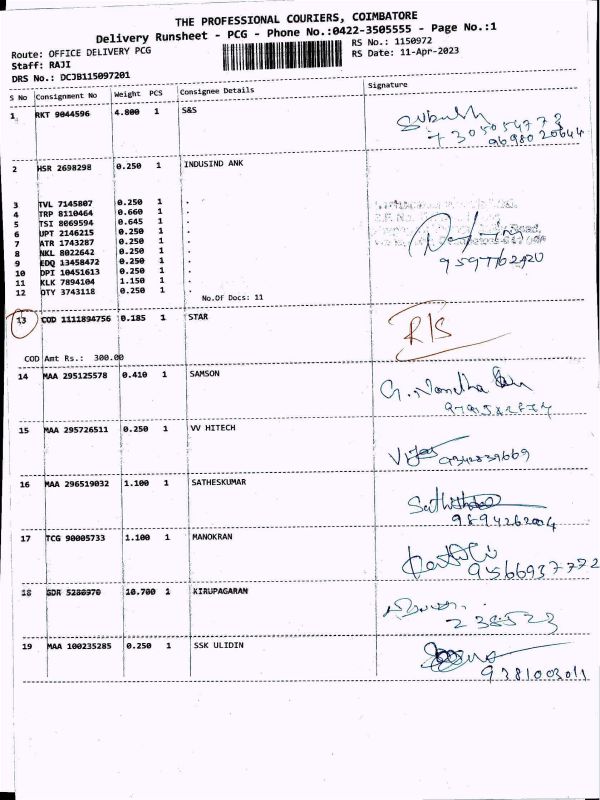 THE PROFESSIONAL COURIERS, COIMBATORE
Delivery Runsheet - PCG - Phone No.:0422-3505555 - Page No.:1
Route: OFFICE DELIVERY PCG
RS No.: 1150972
Staff: RAJI
RS Date: 11-Apr-2023
DRS No.: DCJB115097201
S No Consignment No Weight PCS Consignee Details Signature
1 RKT 9044596 4.800 1 S&S
7305054773
9698020644
2 HSR 2698298 0.250 1 INDUSIND ANK
3 TVL 7145807 0.250 1 .
4 TRP 8110464 0.660 1 .
5 TSI 8069594 0.645 1 .
6 UPT 2146215 0.250 1 .
7 ATR 1743287 0.250 1 .
8 NKL 8022642 0.250 1 .
9 EDQ 13458472 0.250 1 .
10 DPI 10451613 0.250 1 .
11 KLK 7894104 1.150 1 .
12 OTY 3743118 0.250 1 .
No.Of Docs: 11
13 COD 1111894756 0.185 1 STAR
R/S
COD Amt Rs.: 300.00
14 MAA 295125578 0.410 1 SAMSON
15 MAA 295726511 0.250 1 VV HITECH
9342839669
16 MAA 296519032 1.100 1 SATHESKUMAR
9894262004
17 TCG 90005733 1.100 1 MANOKRAN
9566937772
18 GDR 5286970 10.700 1 KIRUPAGARAN
238523
19 MAA 100235285 0.250 1 SSK ULIDIN
9381003011